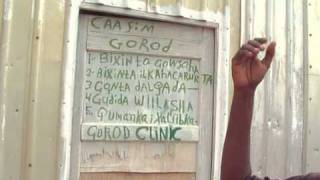 CAASIM
GOROD
1- BIXINTA GOWSAHA
2- BIXINTA ILKAHA CARUURTA
3 QONTA DALQADA
4 GUDIDA WIILASHA
5 GUMANKA I XALLIBKA
GOROD CLINIC